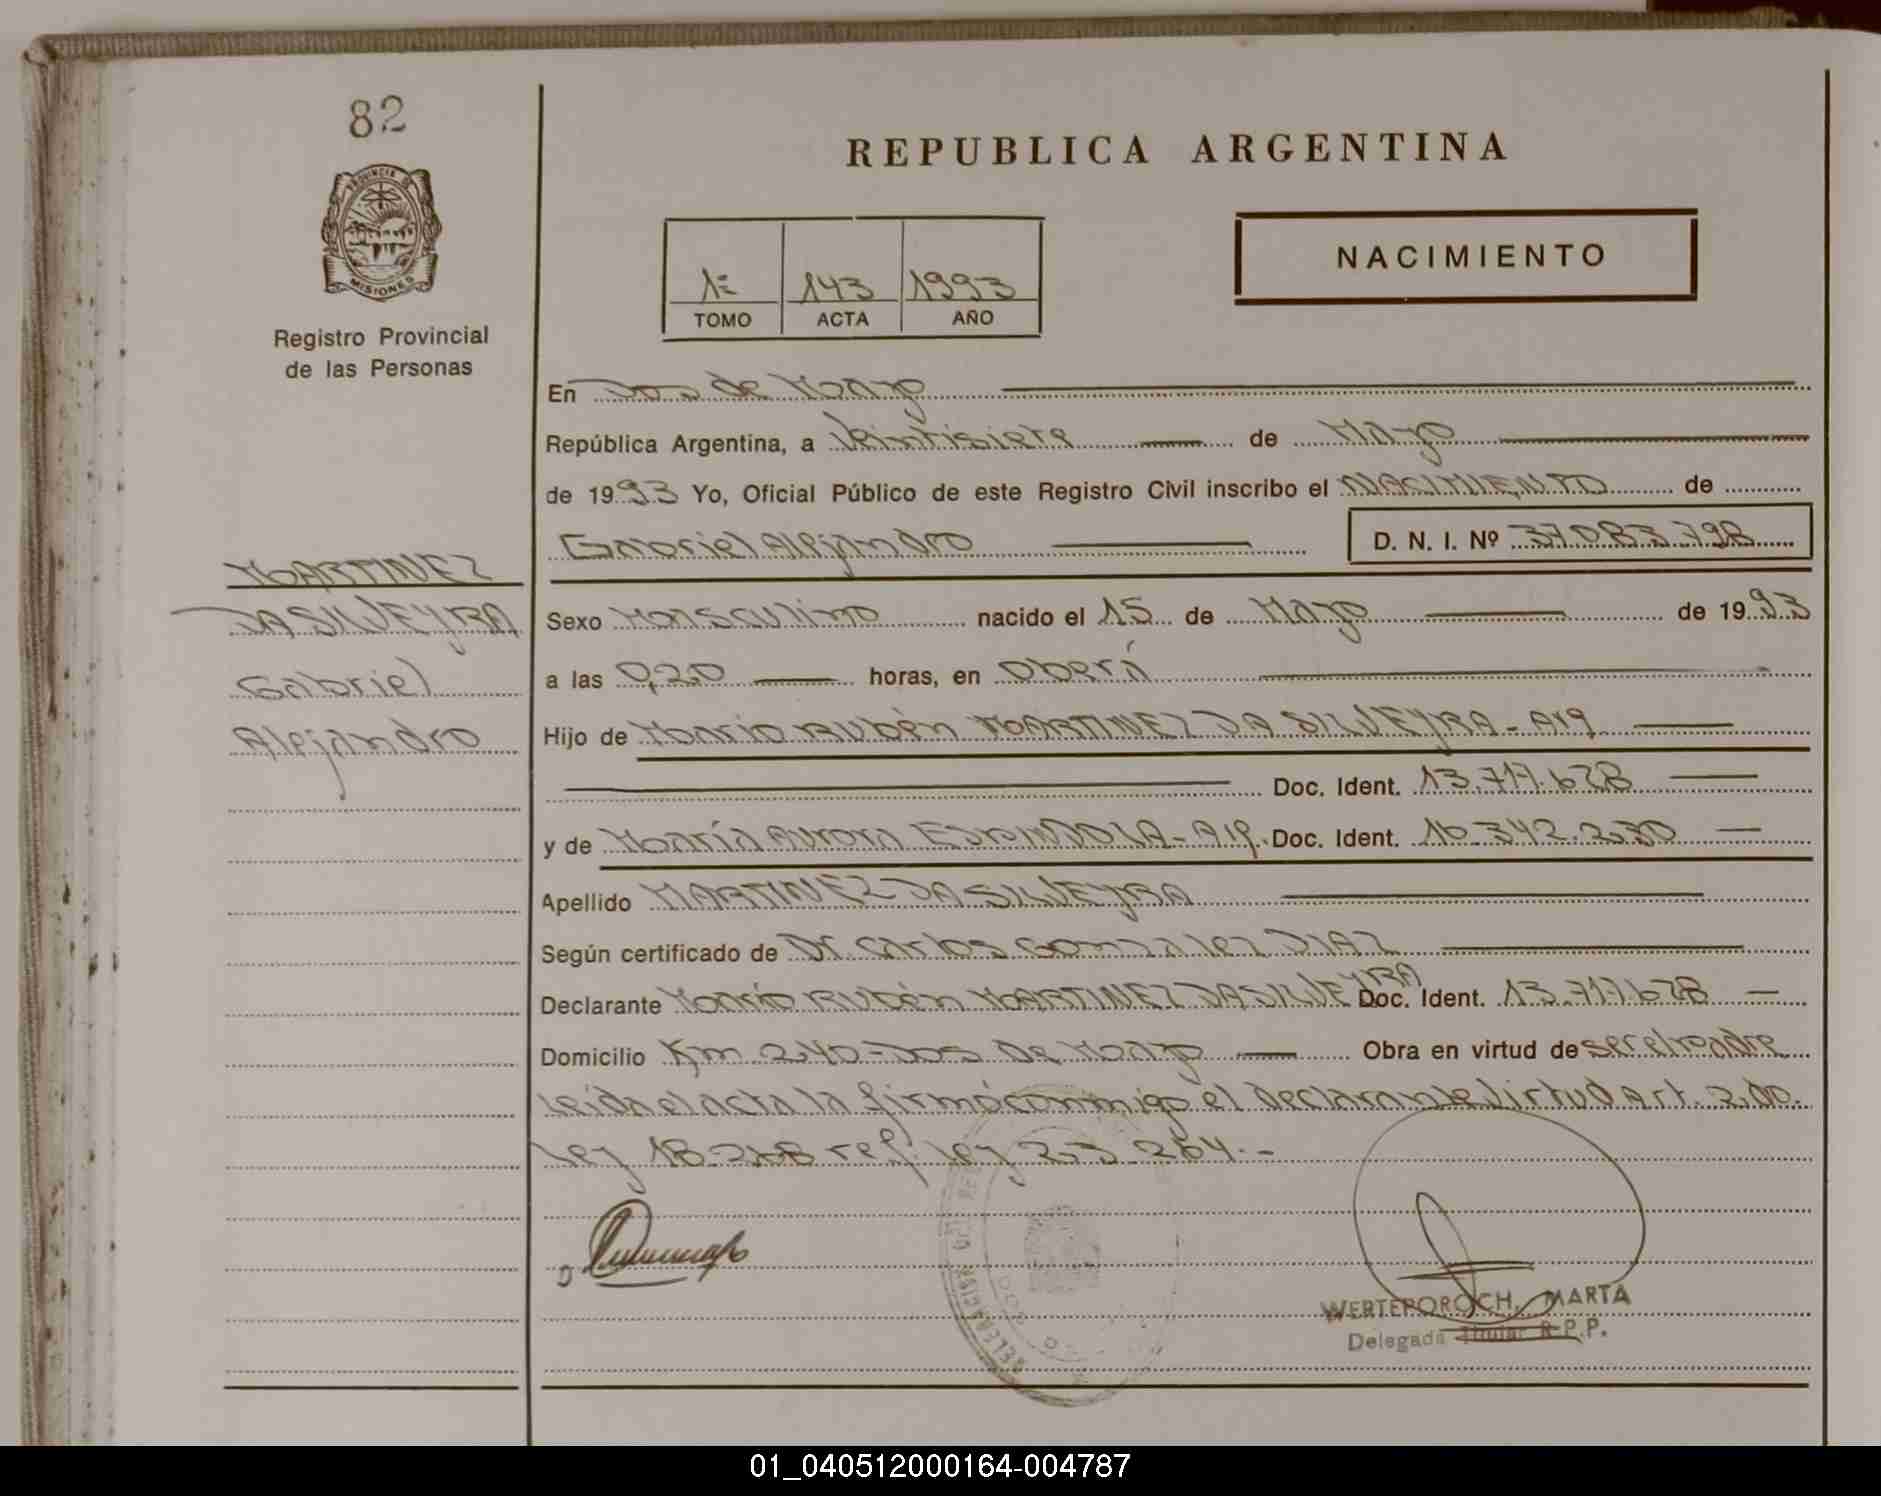 82
PROVINCIA DE
MISIONES
Registro Provincial
de las Personas
MARTINEZ
DA SILVEYRA
Gabriel
Alejandro
REPUBLICA ARGENTINA
NACIMIENTO
1º 143 1993
TOMO ACTA AÑO
En Dos de Mayo
República Argentina, a Veintisiete de Mayo
de 1993 Yo, Oficial Público de este Registro Civil inscribo el NACIMIENTO de
Gabriel Alejandro D. N. I. Nº 37083798
Sexo Masculino nacido el 15 de Mayo de 1993
a las 0,20 horas, en Oberá
Hijo de Mario Rubén MARTINEZ DA SILVEYRA - Arg
Doc. Ident. 13.717.628
y de María Aurora ESPINDOLA - Arg. Doc. Ident. 16.342.230
Apellido MARTINEZ DA SILVEYRA
Según certificado de Dr. Carlos Gonzalez DIAZ
Declarante Mario Rubén MARTINEZ DA SILVEYRA Doc. Ident. 13.717.628
Domicilio Km 240 - Dos De Mayo Obra en virtud de ser el padre
Leida el acta la firmó conmigo el declarante Virtud Art. 2do.
Ley 18.248 ref. Ley 23.264.-
DELEGACION
WERTEPOROCH, MARTA
Delegada Titular R.P.P.
01_040512000164-004787